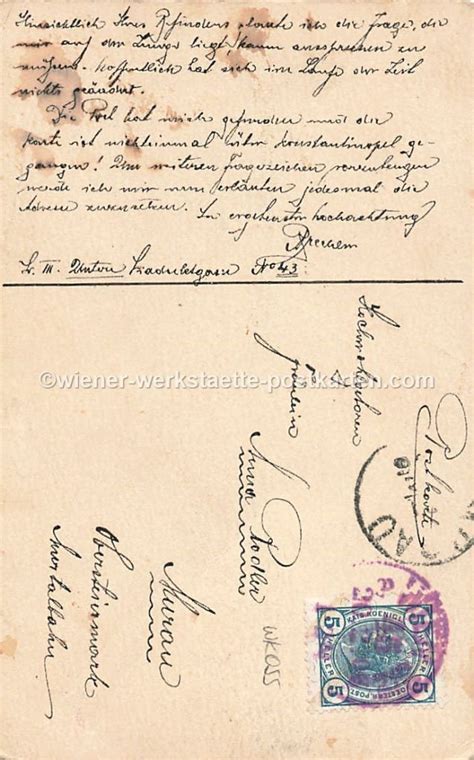 Hinsichtlich Ihres Befindens glaubte ich die Frage, die
mir auf der Zunge liegt, kaum aussprechen zu
müssen. Hoffentlich hat sich im Laufe der Zeit
nichts geändert.
Die Post hat mich gefunden und die
Karte ist nicht einmal über Konstantinopel ge-
gangen! Um weiteren Fragezeichen vorzubeugen
werde ich mir nun erlauben jedesmal die
Adresse zuzusetzen. In ergebenster Hochachtung
III. Untere No 43.
©wiener-werkstaette-postkarten.com
Postkarte
Hochwohlgeboren
Fräulein
Anna
Murau
Obersteiermark
Murtalbahn
WK055
MURAU
KAIS. KOENIGL.
OESTERR. POST
5 HELLER 5
5 HELLER 5